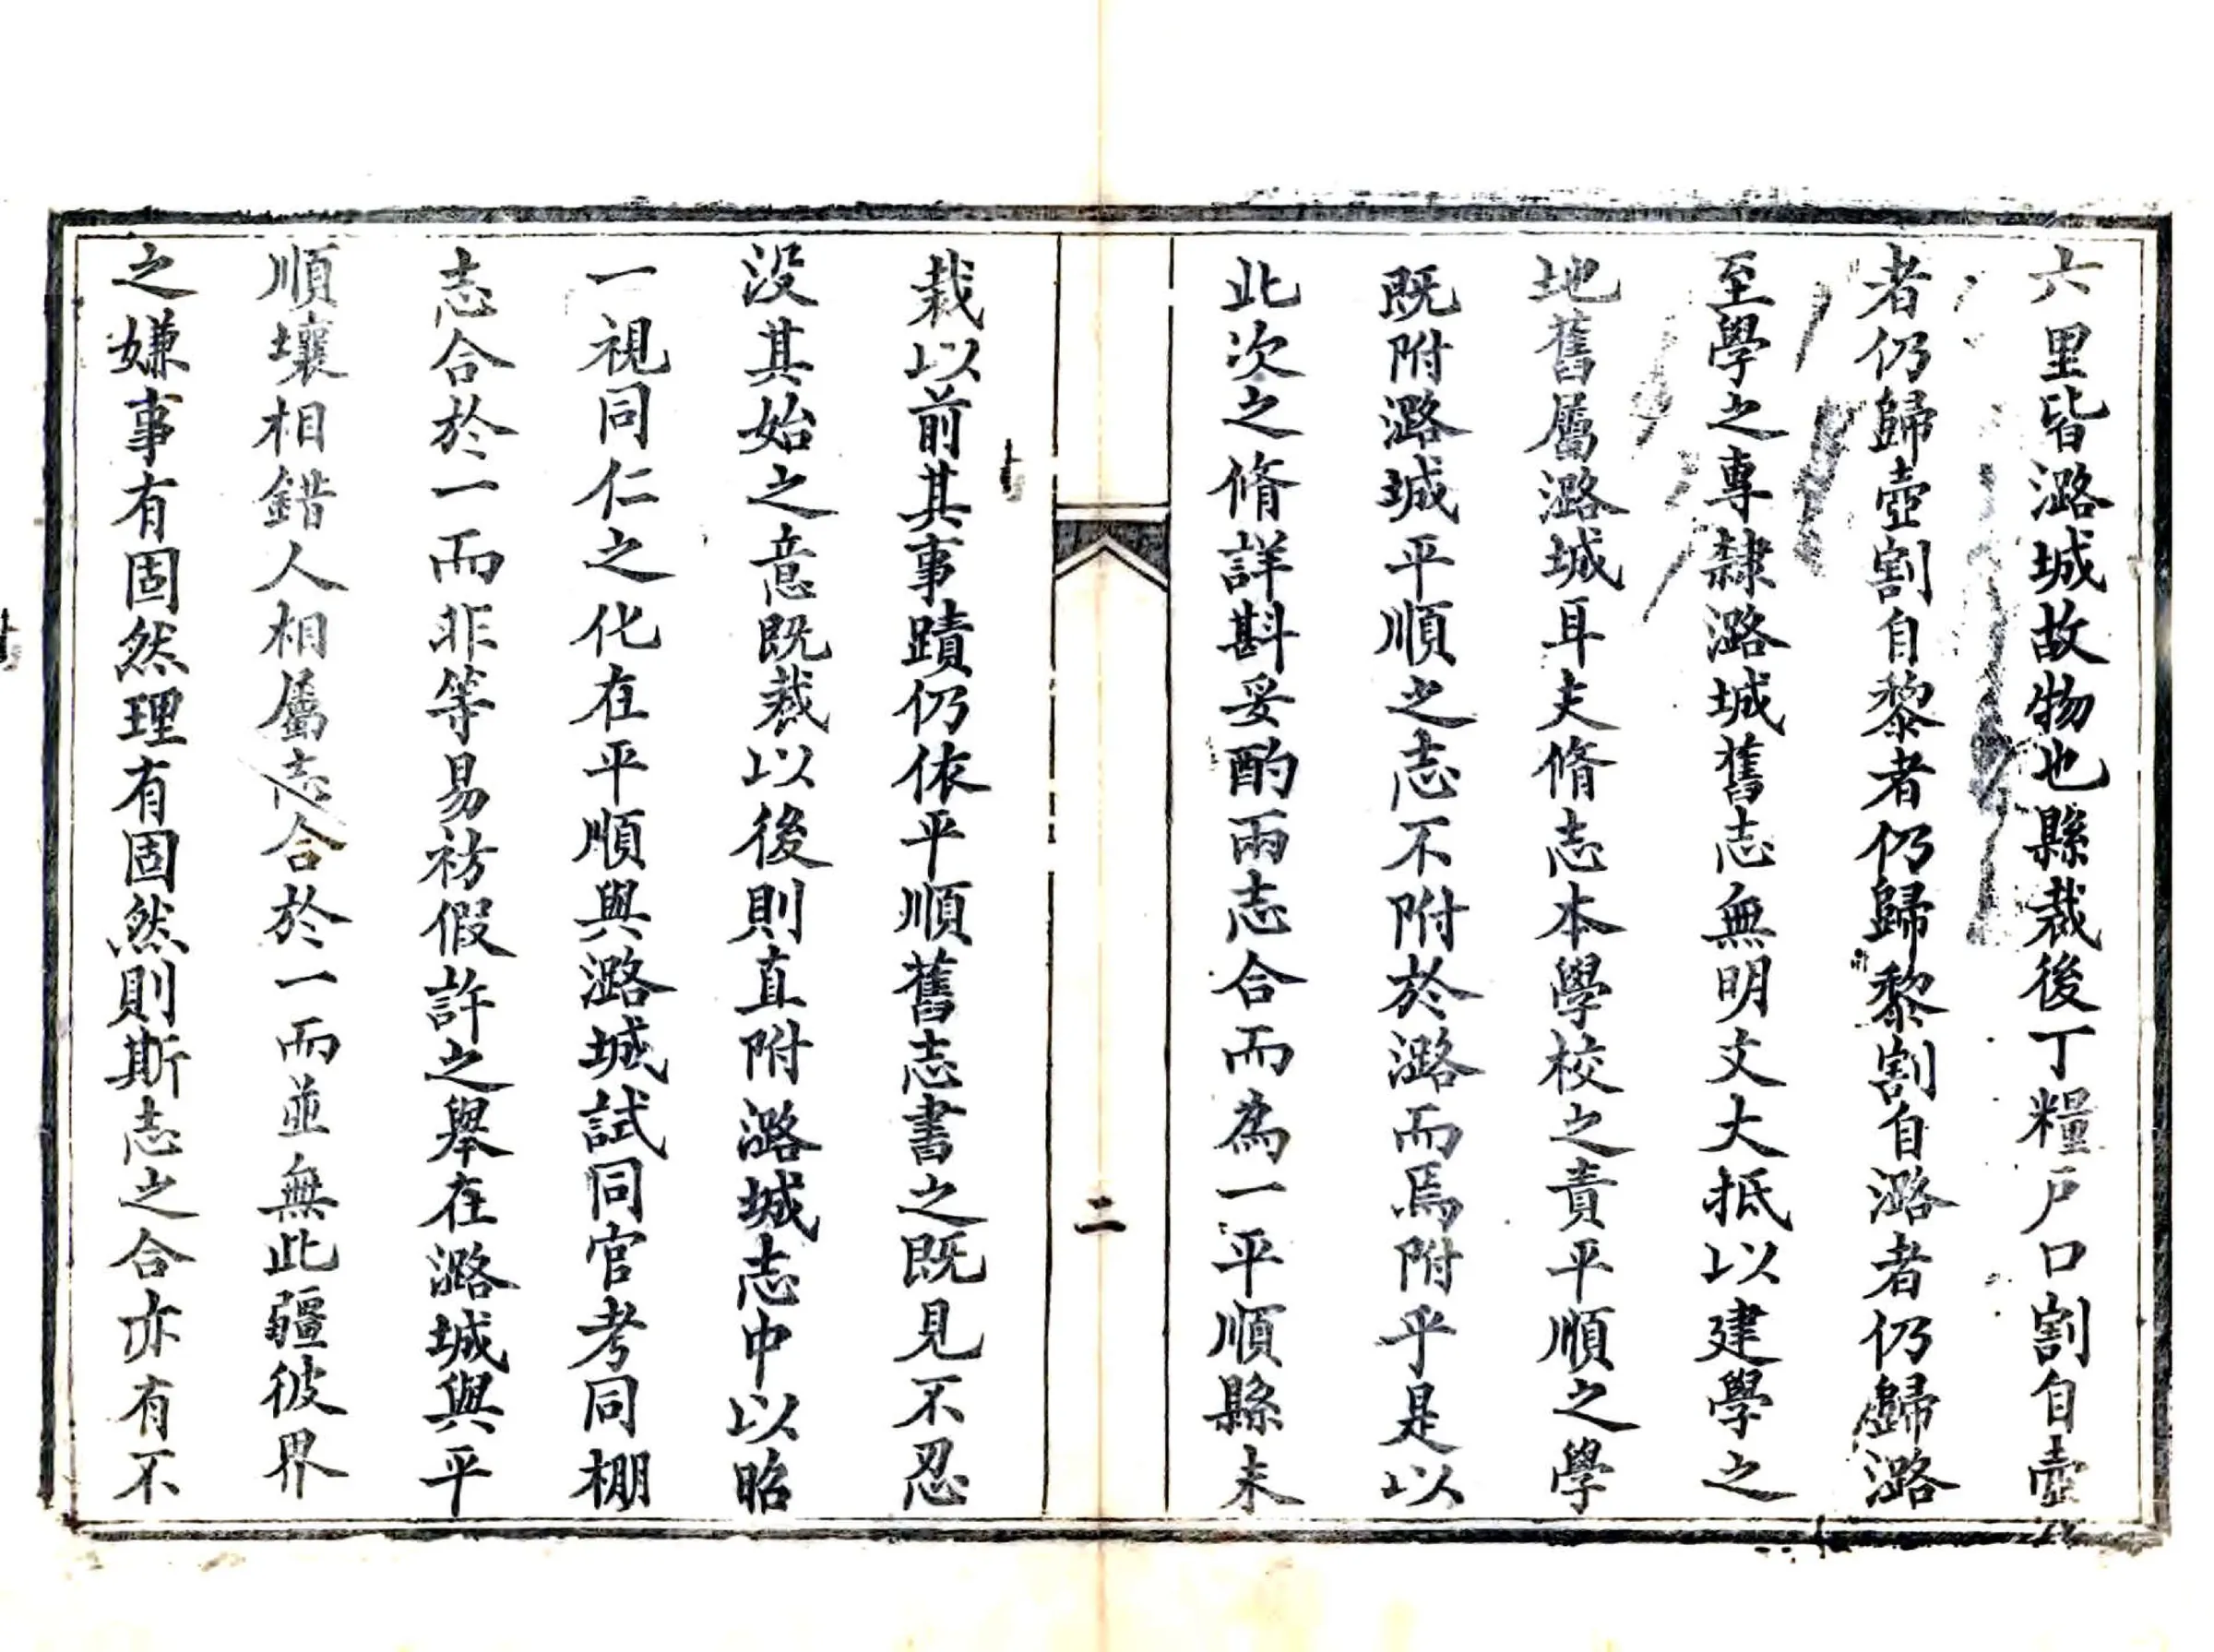 六里皆潞城故物也縣裁後丁糧戶口割自壺
者仍歸壺割自黎者仍歸黎割自潞者仍歸潞
至學之專隸潞城舊志無明文大抵以建學之
地舊屬潞城耳夫脩志本學校之責平順之學
既附潞城平順之志不附於潞而焉附乎是以
此次之脩詳斟妥酌兩志合而為一平順縣未
裁以前其事蹟仍依平順舊志書之既見不忍
沒其始之意既裁以後則直附潞城志中以昭
一視同仁之化在平順與潞城試同官考同棚
志合於一而非等易祊假許之舉在潞城與平
順壤相錯人相屬志合於一而並無此疆彼界
之嫌事有固然理有固然則斯志之合亦有不
二